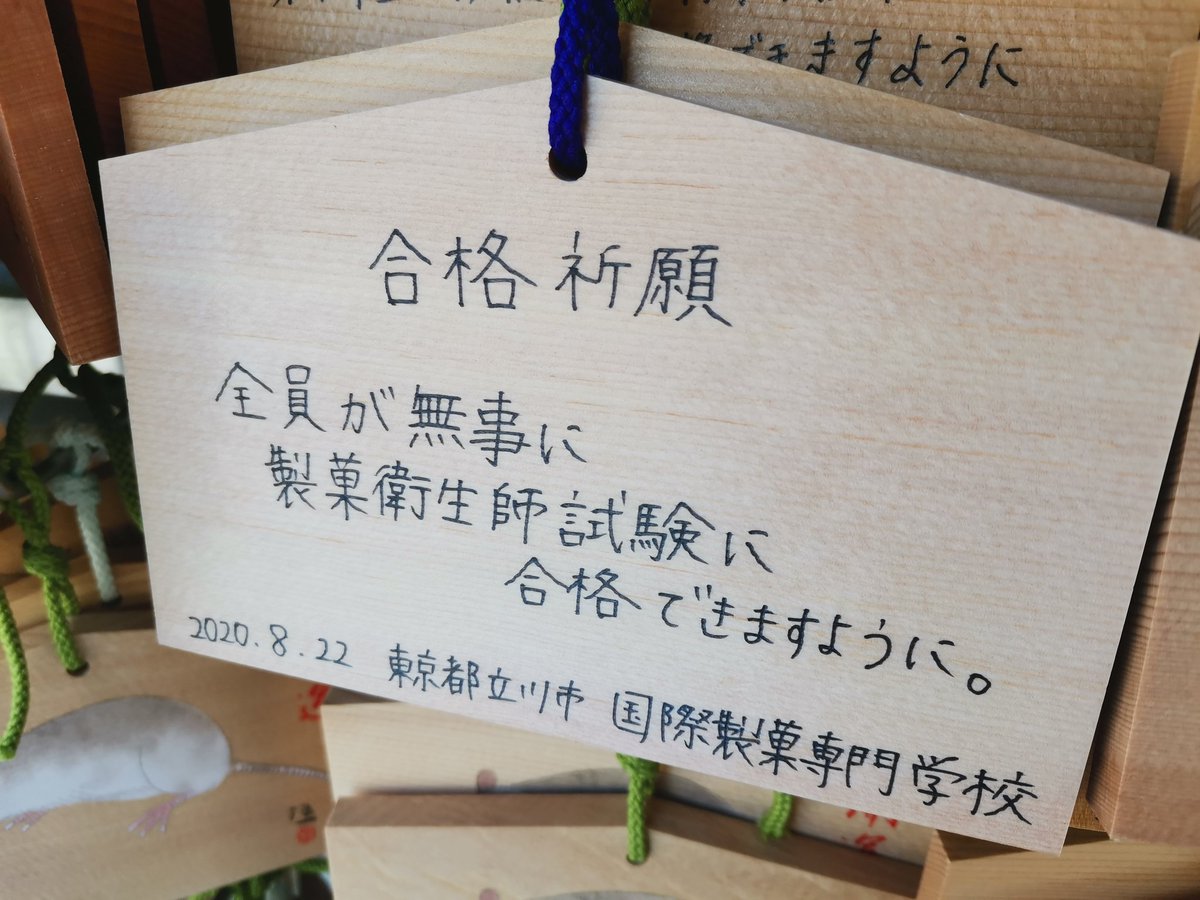 ますように
合格祈願
全員が無事に
製菓衛生師試験に
合格できますように。
2020.8.22 東京都立川市 国際製菓専門学校